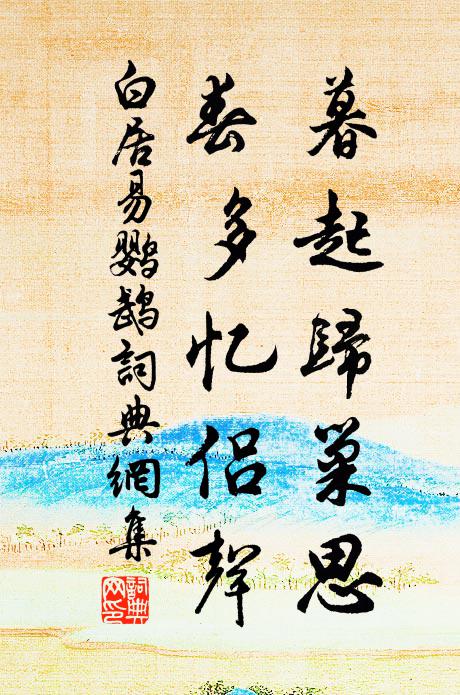 暮起歸巢思
春多忆侣聲
白居易鸚鵡詞典網集
詞典